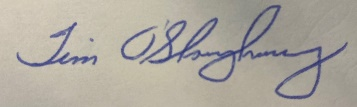 Tim O'Shaughnessy